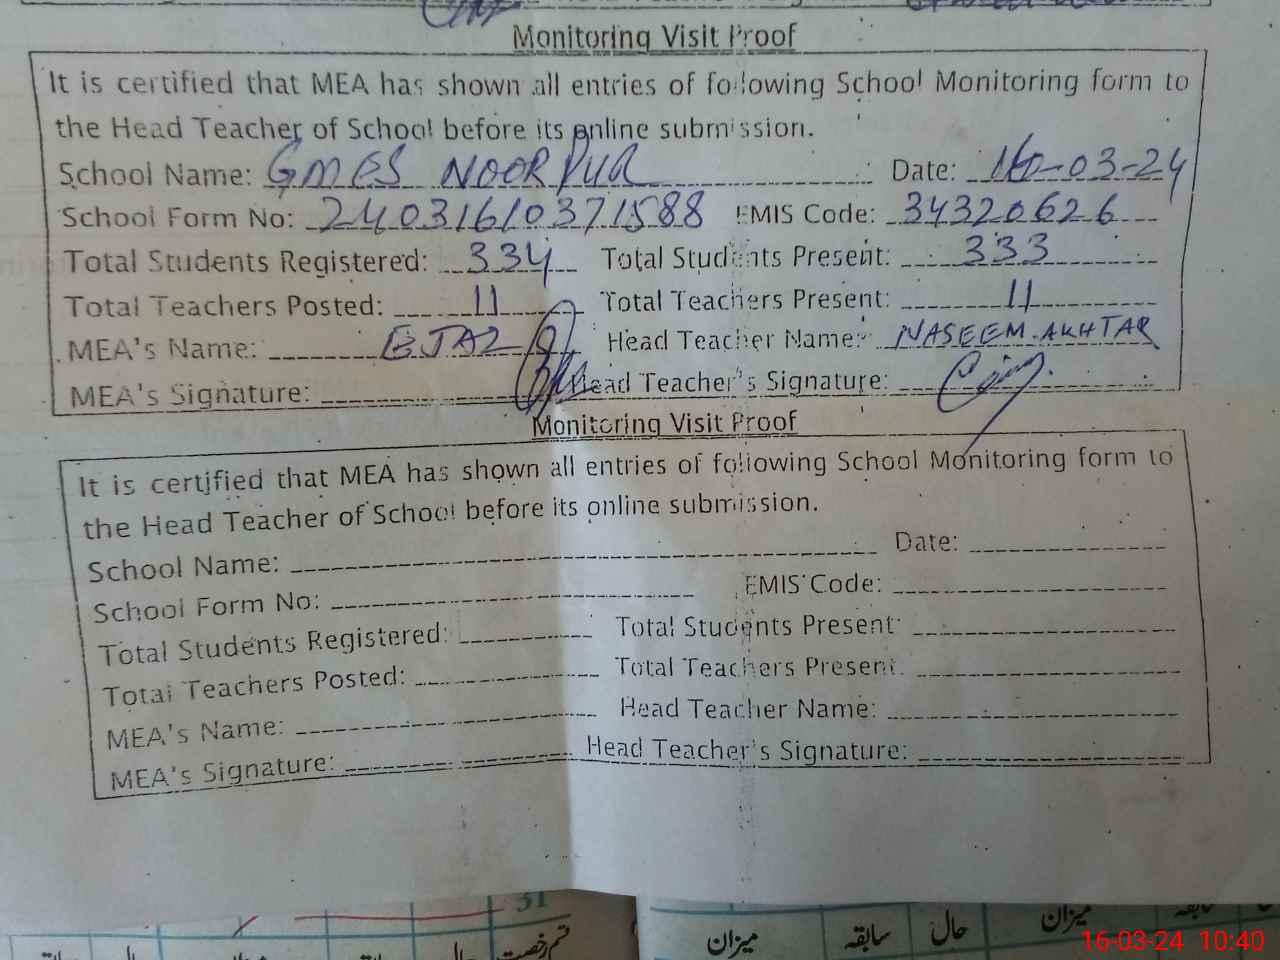 Monitoring Visit Proof
It is certified that MEA has shown all entries of following School Monitoring form to
the Head Teacher of School before its online submission.
School Name: GMES NOORPUR Date: 16-03-24
School Form No: 24031610371588 EMIS Code: 34320626
Total Students Registered: 334 Total Students Present: 333
Total Teachers Posted: 11 Total Teachers Present: 11
MEA's Name: EJAZ Head Teacher Name: NASEEM AKHTAR
MEA's Signature: Head Teacher's Signature:
Monitoring Visit Proof
It is certified that MEA has shown all entries of following School Monitoring form to
the Head Teacher of School before its online submission.
School Name: Date:
School Form No: EMIS Code:
Total Students Registered: Total Students Present:
Total Teachers Posted: Total Teachers Present:
MEA's Name: Head Teacher Name:
MEA's Signature: Head Teacher's Signature:
31
میزان حال سابقہ میزان
قسم رخصت
16-03-24 10:40